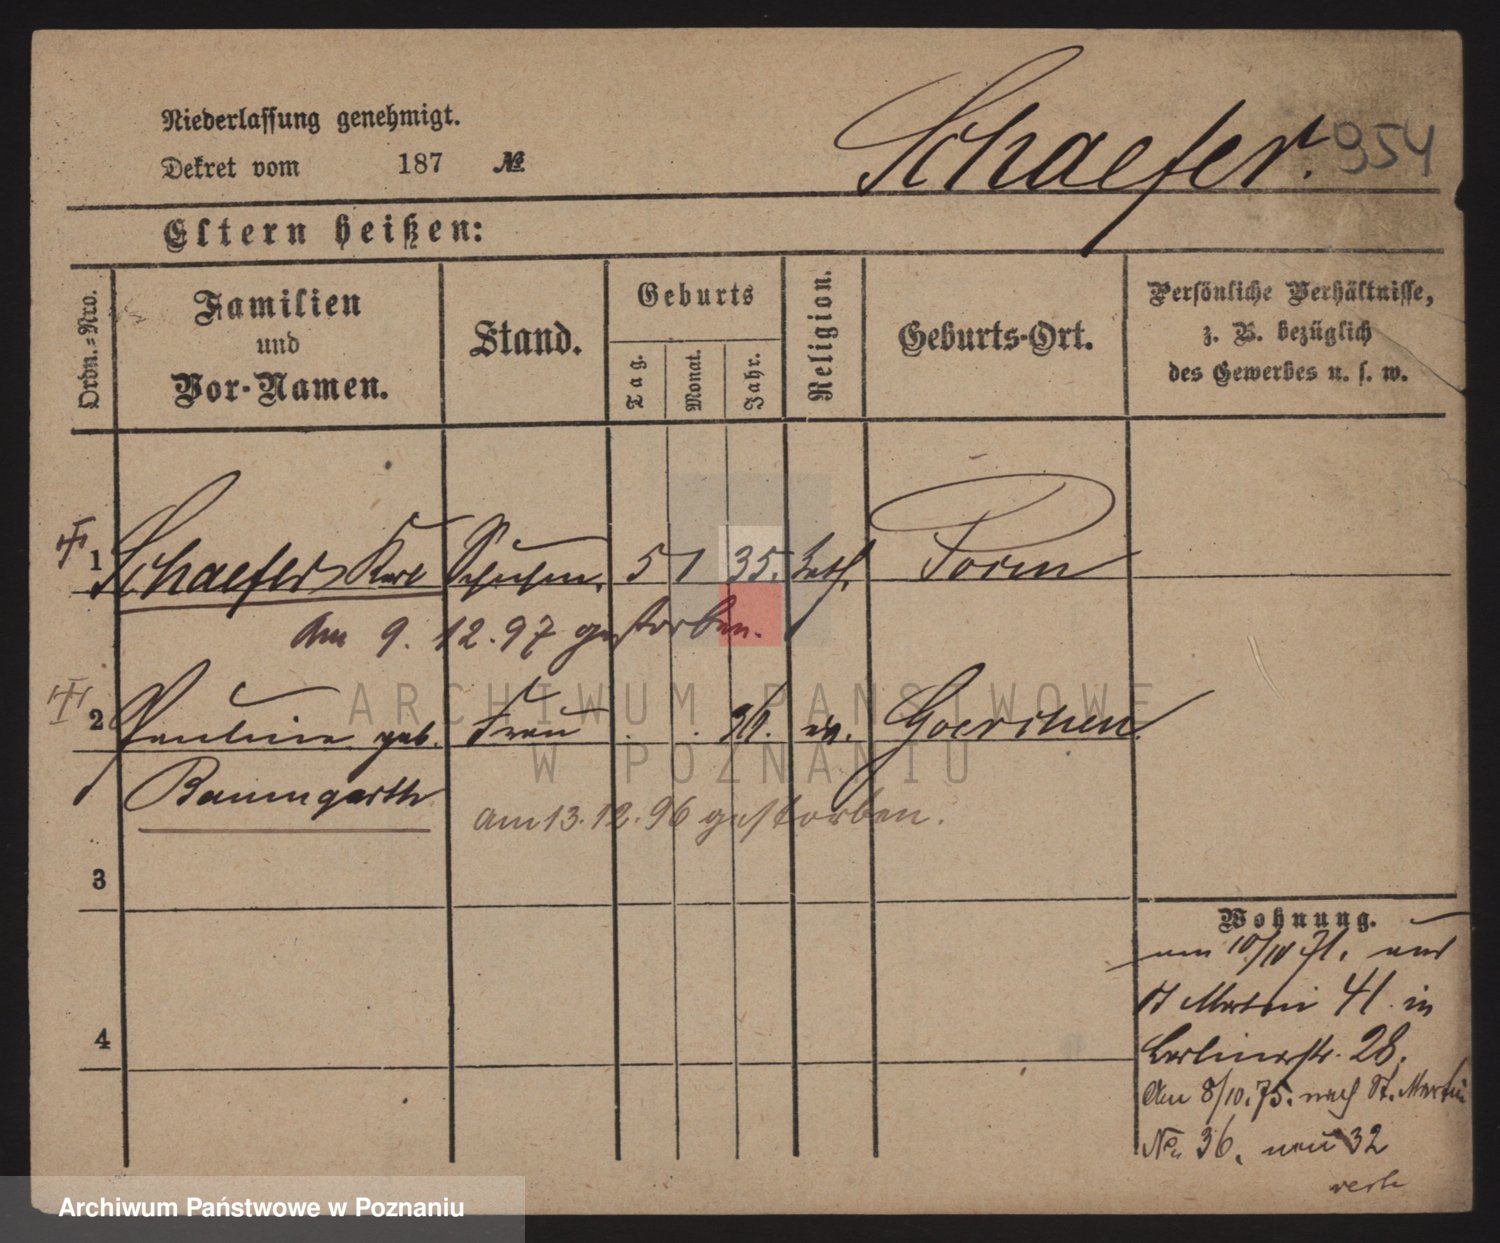 Niederlassung genehmigt.
Dekret vom 187 №
Schaefer. 954
Eltern heißen:
Ordn.=Nro.
Familien
und
Vor-Namen.
Stand.
Geburts
Tag.
Monat.
Jahr.
Religion.
Geburts-Ort.
Persönliche Verhältnisse,
z. B. bezüglich
des Gewerbes u. s. w.
1 Schaefer Karl 5 1 35. kath.
Am 9. 12. 97 gestorben.
2 Pauline geb. Frau ev. Goerchen
Baumgarth
am 13. 12. 96 gestorben.
3
4
Wohnung.
am 10/10 71. aus
St Martin 41 in
Berlinerstr. 28.
Am 8/10. 75. nach St. Martin
No. 36. neu 32
ARCHIWUM PAŃSTWOWE
W POZNANIU
Archiwum Państwowe w Poznaniu